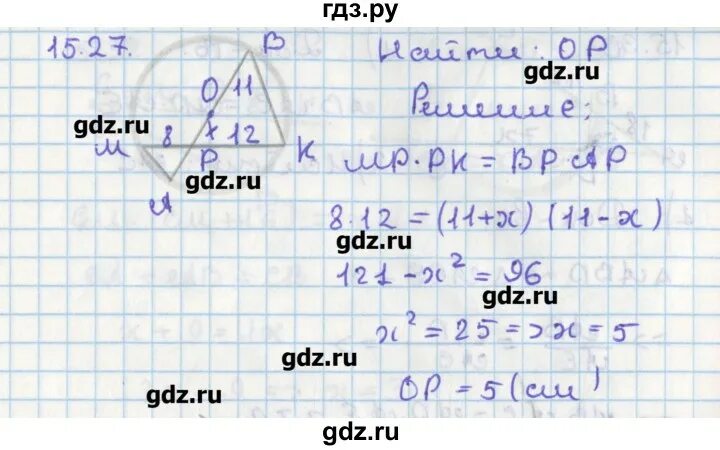 гдз.ру
15.27.
B
Найти: OP
gdz.ru
O 11
Решение:
gdz.ru
M 8 x 12 K
P
gdz.ru
A
MP·PK = BP·AP
8·12 = (11+x)(11-x)
gdz.ru
121 - x² = 96
gdz.ru
x² = 25 => x = 5
gdz.ru
gdz.ru
OP = 5 (см)
gdz.ru